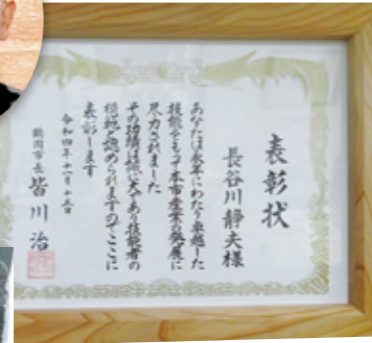 表彰状
長谷川静夫様
あなたは永年にわたり卓越した
技能をもって本市産業の発展に
尽力されました
その功績は誠に大であり技能者の
模範と認められますのでここに
表彰します
令和四年十一月十五日
鶴岡市長 皆川治